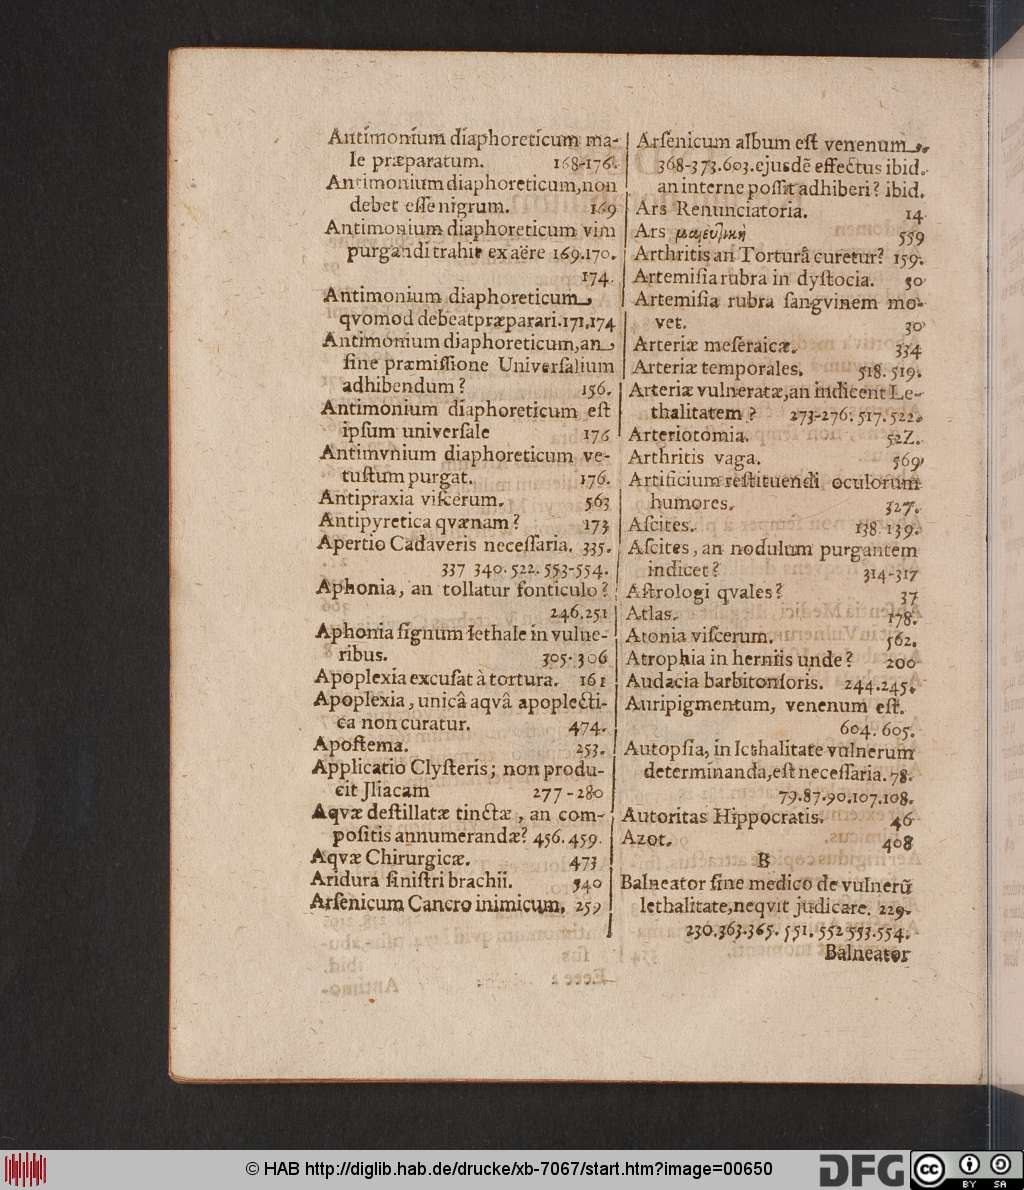 Antimonium diaphoreticum ma-
le præparatum. 168-176.
Antimonium diaphoreticum, non
debet eſſe nigrum. 169
Antimonium diaphoreticum vim
purgandi trahit ex aëre 169.170.
174.
Antimonium diaphoreticum,
qvomod debeat præparari. 171.174
Antimonium diaphoreticum, an
ſine præmiſſione Univerſalium
adhibendum? 156.
Antimonium diaphoreticum eſt
ipſum univerſale 176
Antimvnium diaphoreticum ve-
tuſtum purgat. 176.
Antipraxia viſcerum. 563
Antipyretica qvænam? 173
Apertio Cadaveris neceſſaria. 335.
337 340. 522. 553-554.
Aphonia, an tollatur fonticulo?
246.251
Aphonia ſignum lethale in vulne-
ribus. 305. 306
Apoplexia excuſat à tortura. 161
Apoplexia, unicâ aqvâ apoplecti-
ca non curatur. 474.
Apoſtema. 253.
Applicatio Clyſteris; non produ-
cit Jliacam 277-280
Aqvæ deſtillatæ tinctæ, an com-
poſitis annumerandæ? 456. 459.
Aqvæ Chirurgicæ. 473
Aridura ſiniſtri brachii. 540
Arſenicum Cancro inimicum, 259
Arſenicum album eſt venenum,
368-373.603. ejusdē effectus ibid.
an interne poſſit adhiberi? ibid.
Ars Renunciatoria. 14
Ars μαιευτικὴ 559
Arthritis an Torturâ curetur? 159.
Artemiſia rubra in dyſtocia. 30
Artemiſia rubra ſangvinem mo-
vet. 30
Arteriæ meſeraicæ. 334
Arteriæ temporales. 518. 519.
Arteriæ vulneratæ, an indicent Le-
thalitatem? 273-276. 517. 522.
Arteriotomia. 522.
Arthritis vaga. 569
Artificium reſtituendi oculorum
humores. 327.
Aſcites. 138. 139.
Aſcites, an nodulum purgantem
indicet? 314-317
Aſtrologi qvales? 37
Atlas. 178.
Atonia viſcerum. 562.
Atrophia in herniis unde? 200
Audacia barbitonſoris. 244.245.
Auripigmentum, venenum eſt.
604. 605.
Autopſia, in lethalitate vulnerum
determinanda, eſt neceſſaria. 78.
79.87.90.107.108.
Autoritas Hippocratis. 46
Azot. 408
B
Balneator ſine medico de vulnerū
lethalitate, neqvit judicare. 229.
230.363.365. 551. 552 553.554.
Balneator
© HAB http://diglib.hab.de/drucke/xb-7067/start.htm?image=00650
DFG
cc
BY SA